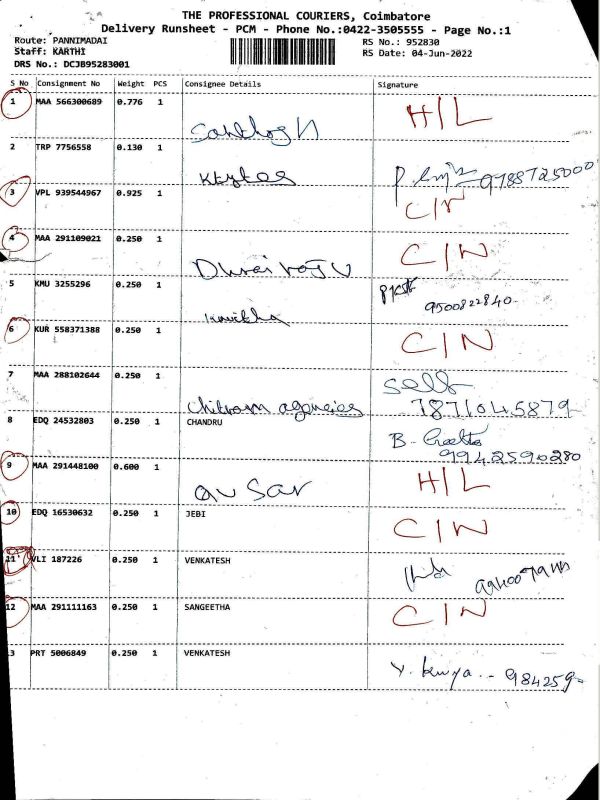 THE PROFESSIONAL COURIERS, Coimbatore
Delivery Runsheet - PCM - Phone No.:0422-3505555 - Page No.:1
Route: PANNIMADAI RS No.: 952830
Staff: KARTHI RS Date: 04-Jun-2022
DRS No.: DCJB95283001
S No Consignment No Weight PCS Consignee Details Signature
1 MAA 566300689 0.776 1 Santhosh N H/L
2 TRP 7756558 0.130 1 9788725000
3 VPL 939544967 0.925 1 C/N
4 MAA 291109021 0.250 1 Durairaju C/N
5 KMU 3255296 0.250 1 Kavitha 9500822840
6 KUR 558371388 0.250 1 C/N
7 MAA 288102644 0.250 1 Chitram agencies self 7871045879
8 EDQ 24532803 0.250 1 CHANDRU 9942590280
9 MAA 291448100 0.600 1 H/L
10 EDQ 16530632 0.250 1 JEBI C/N
11 VLI 187226 0.250 1 VENKATESH
12 MAA 291111163 0.250 1 SANGEETHA C/N
3 PRT 5006849 0.250 1 VENKATESH 984259